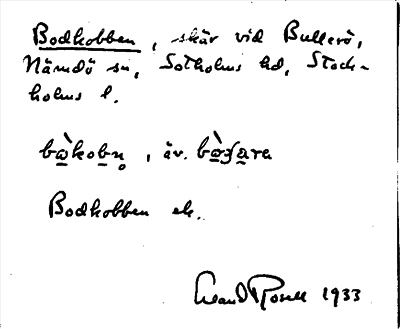 Bodkobben, skär vid Bullerö,
Nämdö sn, Sotholms hd, Stock-
holms l.
bὰ̱koḇn̥, äv. bὰ̱ʒa̱ra
Bodkobben ek.
Evald Rosell 1933